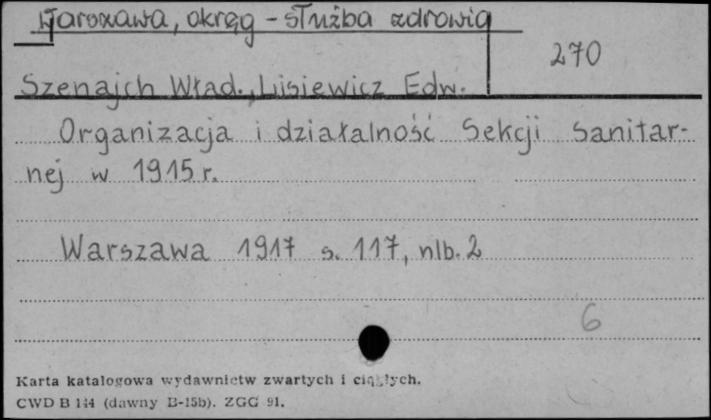 Warszawa, okręg - służba zdrowia
270
Szenajch Wład., Lisiewicz Edw.
Organizacja i działalność Sekcji Sanitar-
nej w 1915 r.
Warszawa 1917 s. 117, nlb. 2
6
Karta katalogowa wydawnictw zwartych i ciągłych.
CWD B 144 (dawny B-15b). ZGG 91.